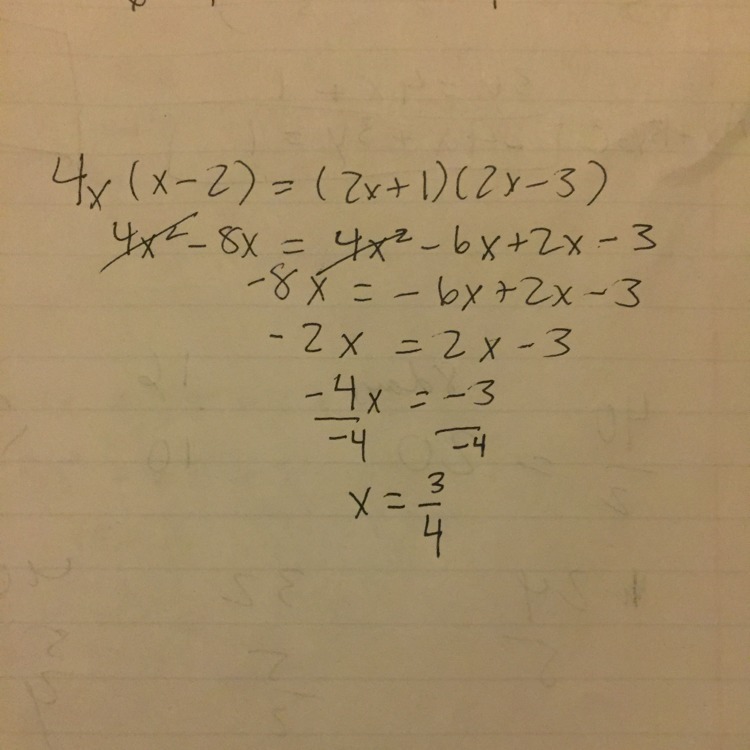 4x(x-2) = (2x+1)(2x-3)
4x² - 8x = 4x² - 6x + 2x - 3
-8x = -6x + 2x - 3
-2x = 2x - 3
-4x = -3
-4 -4
x = 3/4